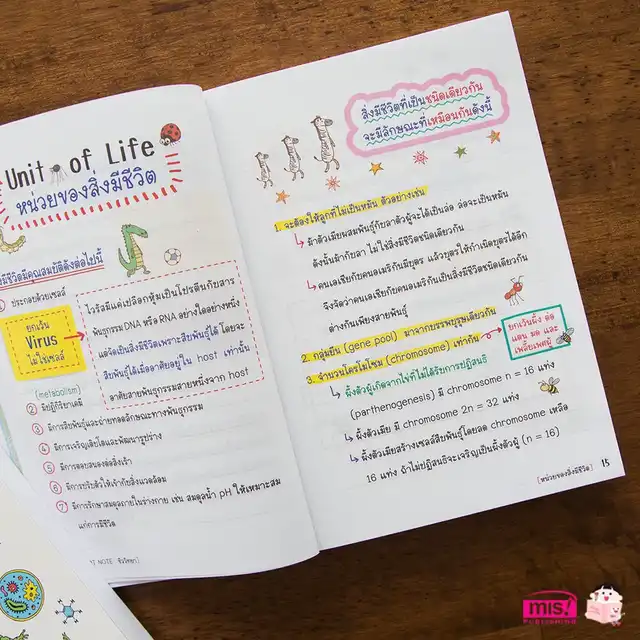 Unit of Life
หน่วยของสิ่งมีชีวิต
มีชีวิตมีคุณสมบัติดังต่อไปนี้
ประกอบด้วยเซลล์
ยกเว้น
Virus
ไม่ใช่เซลล์
ไวรัสมีแค่เปลือกหุ้มเป็นโปรตีนกับสาร
พันธุกรรม DNA หรือ RNA อย่างใดอย่างหนึ่ง
แต่จัดเป็นสิ่งมีชีวิตเพราะสืบพันธุ์ได้ โดยจะ
สืบพันธุ์ได้เมื่ออาศัยอยู่ใน host เท่านั้น
อาศัยสายพันธุกรรมสายหนึ่งจาก host
(metabolism)
② มีปฏิกิริยาเคมี
③ มีการสืบพันธุ์และถ่ายทอดลักษณะทางพันธุกรรม
④ มีการเจริญเติบโตและพัฒนารูปร่าง
⑤ มีการตอบสนองต่อสิ่งเร้า
⑥ มีการปรับตัวให้เข้ากับสิ่งแวดล้อม
⑦ มีการรักษาสมดุลภายในร่างกาย เช่น สมดุลน้ำ pH ให้เหมาะสม
แก่การมีชีวิต
NOTE ชีววิทยา]
สิ่งมีชีวิตที่เป็นชนิดเดียวกัน
จะมีลักษณะที่เหมือนกันดังนี้
1. จะต้องให้ลูกที่ไม่เป็นหมัน ตัวอย่างเช่น
ม้าตัวเมียผสมพันธุ์กับลาตัวผู้จะได้เป็นล่อ ล่อจะเป็นหมัน
ดังนั้นม้ากับลา ไม่ใช่สิ่งมีชีวิตชนิดเดียวกัน
คนเอเชียกับคนอเมริกันมีบุตร แล้วบุตรให้กำเนิดบุตรได้อีก
จึงจัดว่าคนเอเชียกับคนอเมริกันเป็นสิ่งมีชีวิตชนิดเดียวกัน
ต่างกันเพียงสายพันธุ์
2. กลุ่มยีน (gene pool) มาจากบรรพบุรุษเดียวกัน
3. จำนวนโครโมโซม (chromosome) เท่ากัน
ยกเว้นผึ้ง ต่อ
แตน มด และ
เพลี้ยเพศผู้
ผึ้งตัวผู้เกิดจากไข่ที่ไม่ได้รับการปฏิสนธิ
(parthenogenesis) มี chromosome n = 16 แท่ง
ผึ้งตัวเมีย มี chromosome 2n = 32 แท่ง
ผึ้งตัวเมียสร้างเซลล์สืบพันธุ์โดยลด chromosome เหลือ
16 แท่ง ถ้าไม่ปฏิสนธิจะเจริญเป็นผึ้งตัวผู้ (n = 16)
[หน่วยของสิ่งมีชีวิต] 15
mis!
Publishing